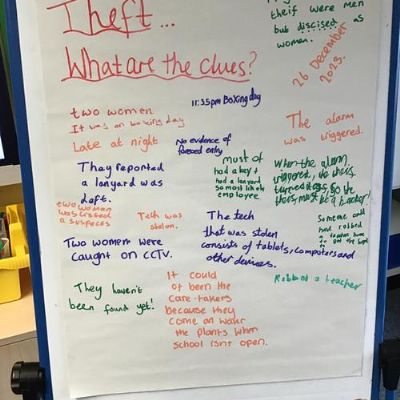 Theft...
What are the clues?
theif were men
but discised as
women.
26 December
2023.
11:35pm Boxing day
two women
It was on boxing day
Late at night
No evidence of
forced entry
The alarm
was triggered.
They reported
a lanyard was
left.
most of
had a key +
had a lanyard
so most likely
employee
When the alarm
triggered,
turned
teacher!
two women
was
suspeces
Tech was
stolen.
The tech
that was stolen
consists of tablets, computers and
other devices.
Someone
had robbed
Two women were
caught on CCTV.
They haven't
been found yet!
It could
of been the
care-takers
because they
come on watr
the plants when
school isnt open.
a teacher